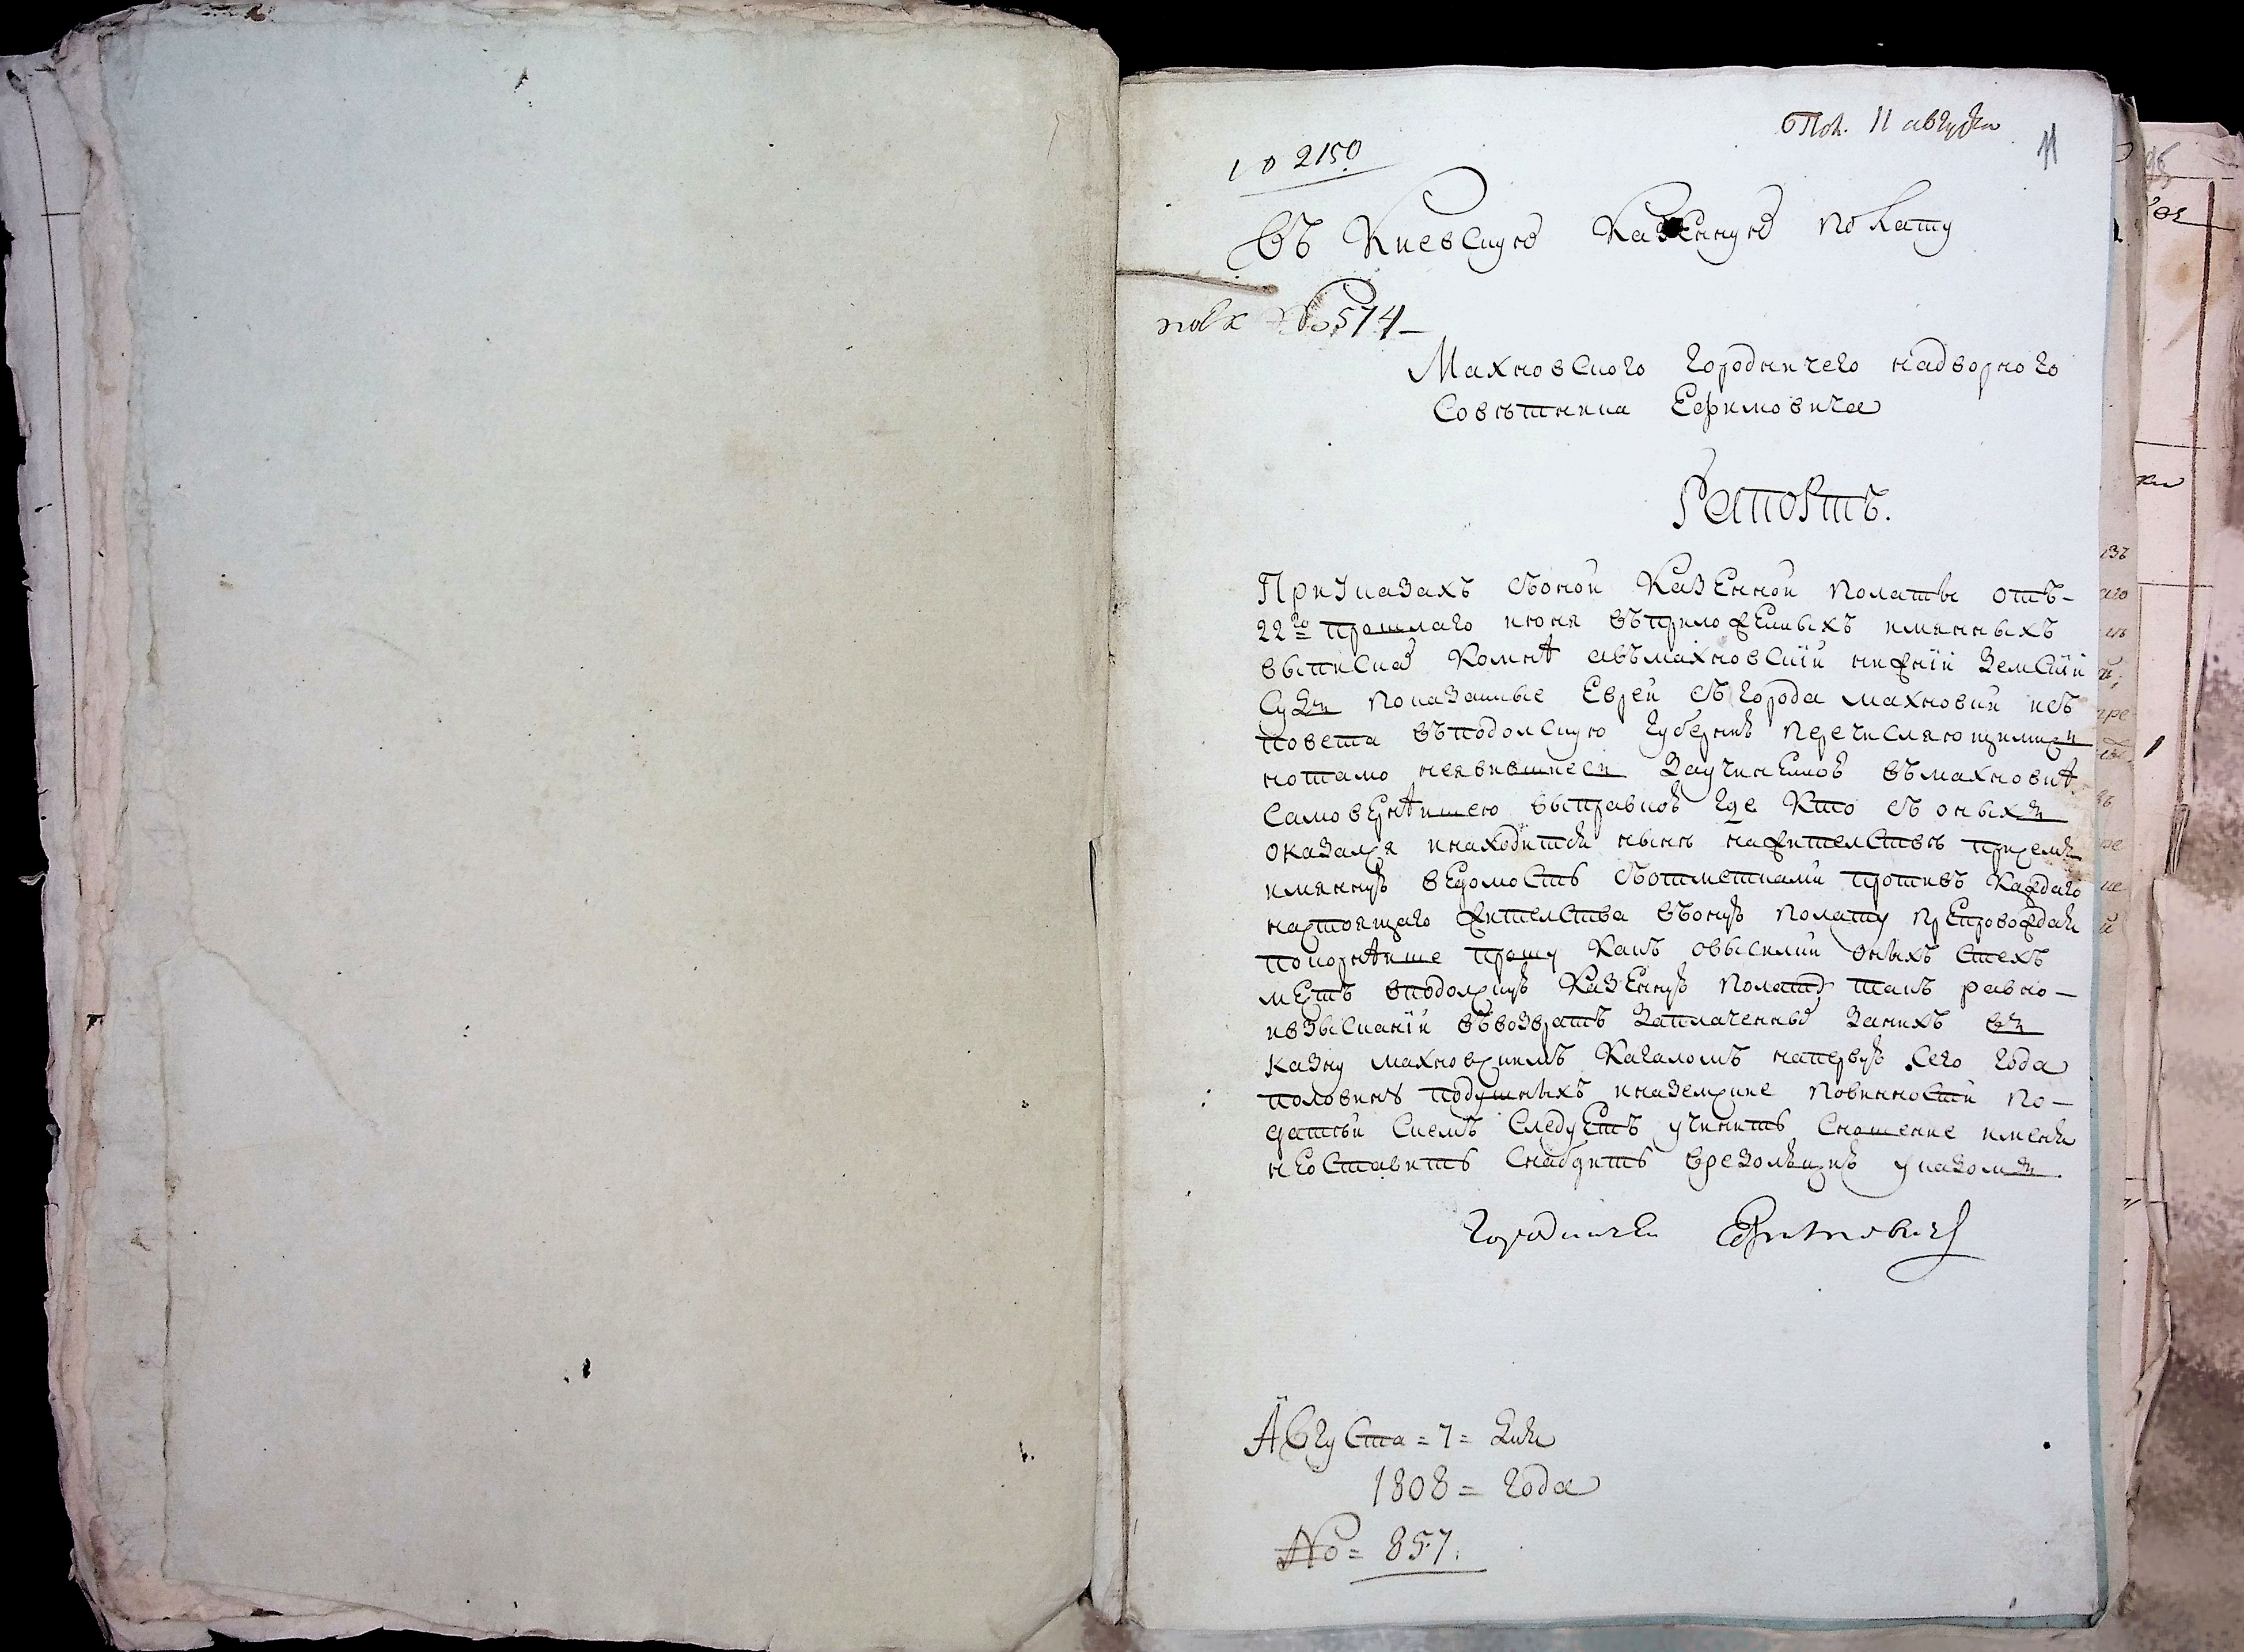 Пол. 11 августа
11
№ 2150
Въ Киевскую Казенную полату
№ 574
Махновского городничего надворного
Советника Ефимовича
Рапортъ.
При указахъ съоной Казенной полаты отъ
22го прошлаго июня въприложенныхъ имянныхъ
выписка комнѣ авъмахновский нижний Земский
Судъ показанные Евреи съгорода махновки исъ
повета въподолскую губернию перечисляющимися
нотамо неявившиеся Заучинениою въмахновкѣ
самовернѣйшею выправкою где кто съ оныхъ
оказался инаходится нынѣ нажителствѣ присемъ
имянную ведомость съотметками противъ каждаго
настоящаго жителства въоную полату препровождая
покорнѣйше прошу какъ овысилки оныхъ стехъ
местъ вподолскую Казенную полату такъ равно
ивзыскании въвозвратъ Заплаченные Занихъ въ
казну махновскимъ Кагаломъ напервую сего года
половину подушныхъ иназемские повинности по-
датей скемъ следуетъ учинить сношение именя
неоставить снабдить врезолюцию указомъ
городничей Ефимовичъ
Августа = 7 = дня
1808 = года
№ = 857.